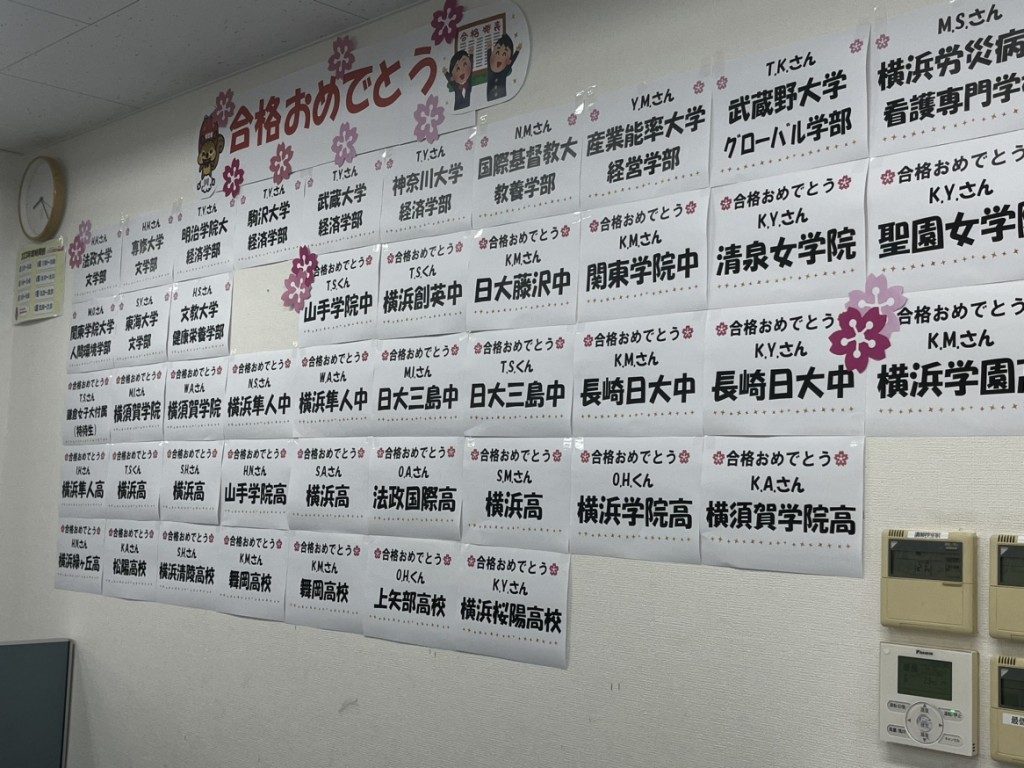 合格おめでとう
合格発表
H.H.さん
法政大学
文学部
H.H.さん
専修大学
文学部
T.Y.さん
明治学院大
経済学部
T.Y.さん
駒沢大学
経済学部
T.Y.さん
武蔵大学
経済学部
T.Y.さん
神奈川大学
経済学部
N.M.さん
国際基督教大
教養学部
Y.M.さん
産業能率大学
経営学部
T.K.さん
武蔵野大学
グローバル学部
M.S.さん
横浜労災病
看護専門学
M.O.さん
関東学院大学
人間環境学部
S.Y.さん
東海大学
文学部
H.S.さん
文教大学
健康栄養学部
合格おめでとう
T.S.くん
山手学院中
合格おめでとう
T.S.くん
横浜創英中
合格おめでとう
K.M.さん
日大藤沢中
合格おめでとう
K.M.さん
関東学院中
合格おめでとう
K.Y.さん
清泉女学院
合格おめでとう
K.Y.さん
聖園女学院
合格おめでとう
T.S.さん
鎌倉女子大付属
(特待生)
合格おめでとう
M.I.さん
横須賀学院
合格おめでとう
W.A.さん
横須賀学院
合格おめでとう
N.S.さん
横浜隼人中
合格おめでとう
W.A.さん
横浜隼人中
合格おめでとう
M.I.さん
日大三島中
合格おめでとう
T.S.くん
日大三島中
合格おめでとう
K.M.さん
長崎日大中
合格おめでとう
K.Y.さん
長崎日大中
合格おめでとう
K.M.さん
横浜学園高
合格おめでとう
I.H.さん
横浜隼人高
合格おめでとう
T.S.くん
横浜高
合格おめでとう
S.H.さん
横浜高
合格おめでとう
H.N.さん
山手学院高
合格おめでとう
S.A.さん
横浜高
合格おめでとう
O.A.さん
法政国際高
合格おめでとう
S.M.さん
横浜高
合格おめでとう
O.H.くん
横浜学院高
合格おめでとう
K.A.さん
横須賀学院高
合格おめでとう
H.N.さん
横浜緑ヶ丘高
合格おめでとう
K.A.さん
松陽高校
合格おめでとう
S.H.さん
横浜清陵高校
合格おめでとう
K.M.さん
舞岡高校
合格おめでとう
K.M.さん
舞岡高校
合格おめでとう
O.H.くん
上矢部高校
合格おめでとう
K.Y.さん
横浜桜陽高校